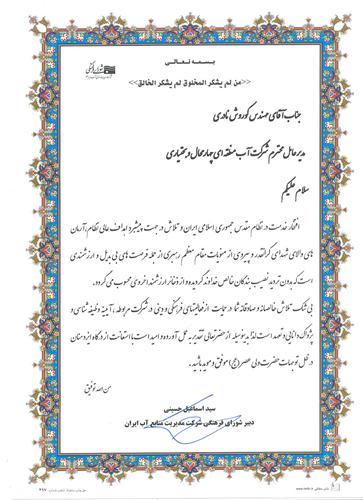 بسمه تعالی
<<من لم یشکر المخلوق لم یشکر الخالق>>
شورای فرهنگی
جناب آقای مهندس کوروش نادری
مدیرعامل محترم شرکت آب منطقه ای چهارمحال و بختیاری
سلام علیکم
افتخار خدمت در نظام مقدس جمهوری اسلامی ایران و تلاش در جهت پیشبرد اهداف عالی نظام، آرمان
های والای شهدای گرانقدر و پیروی از منویات مقام معظم رهبری از جمله فرصت های بی بدیل و ارزشمندی
است که بدون تردید نصیب بندگان خالص خداوند گردیده و از ذخائر ارزشمند اخروی محسوب می گردد.
بی شک تلاش خالصانه و صادقانه شما در حمایت از فعالیتهای فرهنگی و دینی در شرکت مربوطه، آیینه وظیفه شناسی و
پژواک دانایی و تعهد است لذا بدینوسیله از حضرتعالی تقدیر به عمل آورده و امید است با استعانت از درگاه ایزد منان
در ظل توجهات حضرت ولی عصر (عج) موفق و موید باشید.
من الله توفیق
سید اسماعیل حسینی
دبیر شورای فرهنگی شرکت مدیریت منابع آب ایران